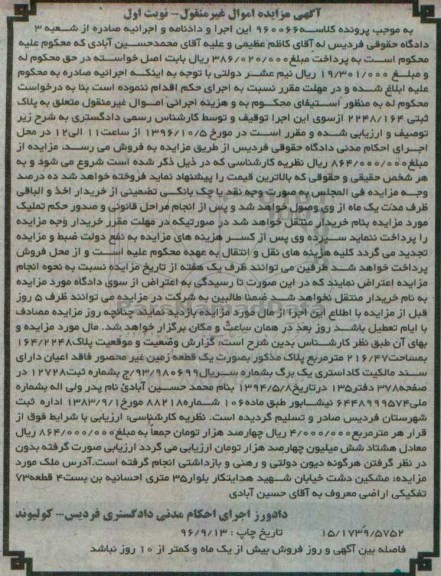 آگهی مزایده اموال غیرمنقول- نوبت اول
به موجب پرونده کلاسه ۹۶۰۰۶۶ این اجرا و دادنامه و اجرائیه صادره از شعبه ۳
دادگاه حقوقی فردیس له آقای کاظم عظیمی و علیه آقای محمدحسین آبادی که محکوم علیه
محکوم است به پرداخت مبلغ ۳۸۶/۰۲۰/۰۰۰ ریال بابت اصل خواسته در حق محکوم له
و مبلغ ۱۹/۳۰۱/۰۰۰ ریال نیم عشر دولتی با توجه به اینکه اجرائیه صادره به محکوم
علیه ابلاغ شده و در مهلت مقرر نسبت به اجرای حکم اقدام ننموده است بنا به درخواست
محکوم له به منظور استیفای محکوم به و هزینه اجرائی اموال غیرمنقول متعلق به پلاک
ثبتی ۲۲۴۸/۱۶۴ ازسوی این اجرا توقیف و توسط کارشناس رسمی دادگستری به شرح زیر
توصیف و ارزیابی شده و مقرر است در مورخ ۱۳۹۶/۱۰/۵ از ساعت ۱۱ الی ۱۲ در محل
اجرای احکام مدنی دادگاه حقوقی فردیس از طریق مزایده به فروش می رسد، مزایده از
مبلغ ۸۶۴/۰۰۰/۰۰۰ ریال نظریه کارشناسی که در ذیل ذکر شده است شروع می شود و به
هر شخص حقیقی و حقوقی که بالاترین قیمت را پیشنهاد نماید فروخته خواهد شد ده درصد
وجه مزایده فی المجلس به صورت وجه نقد یا چک بانکی تضمینی از خریدار اخذ و الباقی
ظرف مدت یک ماه از وی وصول خواهد شد و پس از انجام مراحل قانونی و صدور حکم تملیک
مورد مزایده بنام خریدار منتقل خواهد شد در صورتیکه در مهلت مقرر خریدار وجه مزایده
را پرداخت ننماید سپرده وی پس از کسر هزینه های مزایده به نفع دولت ضبط و مزایده
تجدید می گردد کلیه هزینه های نقل و انتقال به عهده محکوم علیه است و از محل فروش
پرداخت خواهد شد طرفین می توانند ظرف یک هفته از تاریخ مزایده نسبت به نحوه انجام
مزایده اعتراض نمایند که در این صورت تا رسیدگی به اعتراض از سوی دادگاه مورد مزایده
به نام خریدار منتقل نخواهد شد ضمنا طالبین به شرکت در مزایده می توانند ظرف ۵ روز
قبل از مزایده با اطلاع این اجرا از مال مورد مزایده بازدید نمایند چنانچه روز مزایده مصادف
با ایام تعطیل باشد روز بعد در همان ساعت و مکان برگزار خواهد شد. مال مورد مزایده و
بهای آن طبق نظر کارشناس بدین شرح است: گزارش وضعیت و موقعیت پلاک ۱۶۴/۲۲۴۸
بمساحت ۲۱۶/۴۷ مترمربع پلاک مذکور بصورت یک قطعه زمین غیر محصور فاقد اعیان دارای
سند مالکیت کاداستری یک برگ بشماره سریال ۹۳/۹۸۰۶۹۹/ج بشماره ثبت ۱۲۷۲۸ در
صفحه ۳۷۸ دفتر ۱۳۵ درتاریخ ۱۳۹۴/۵/۸ بنام محمد حسین آبادی نام پدر ولی اله بشماره
ملی ۶۴۴۸۹۹۹۵۷۴ نیشابور طبق ماده ۱۰۶ شماره ۸۸۲۱۸ مورخ ۱۳۸۳/۹/۱ اداره ثبت
شهرستان فردیس صادر و تسلیم گردیده است. نظریه کارشناسی: ارزیابی با شرایط فوق از
قرار هر مترمربع ۴/۰۰۰/۰۰۰ ریال چهارصد هزار تومان جمعاً به مبلغ ۸۶۴/۰۰۰/۰۰۰ ریال
معادل هشتاد شش میلیون چهارصد هزار تومان ارزیابی می گردد ارزیابی صورت گرفته بدون
در نظر گرفتن هرگونه دیون دولتی و رهنی و بازداشتی انجام گرفته است. آدرس ملک مورد
مزایده: مشکین دشت خیابان شهید هدایتکار بلوار ۳۵ متری احسانیه بن بست ۴ قطعه ۷۳
تفکیکی اراضی معروف به آقای حسین آبادی
دادورز اجرای احکام مدنی دادگستری فردیس- کولیوند
۱۵/۱۷۳۹/۵۷۵۲ تاریخ چاپ : ۹۶/۹/۱۳
فاصله بین آگهی و روز فروش بیش از یک ماه و کمتر از ۱۰ روز نباشد